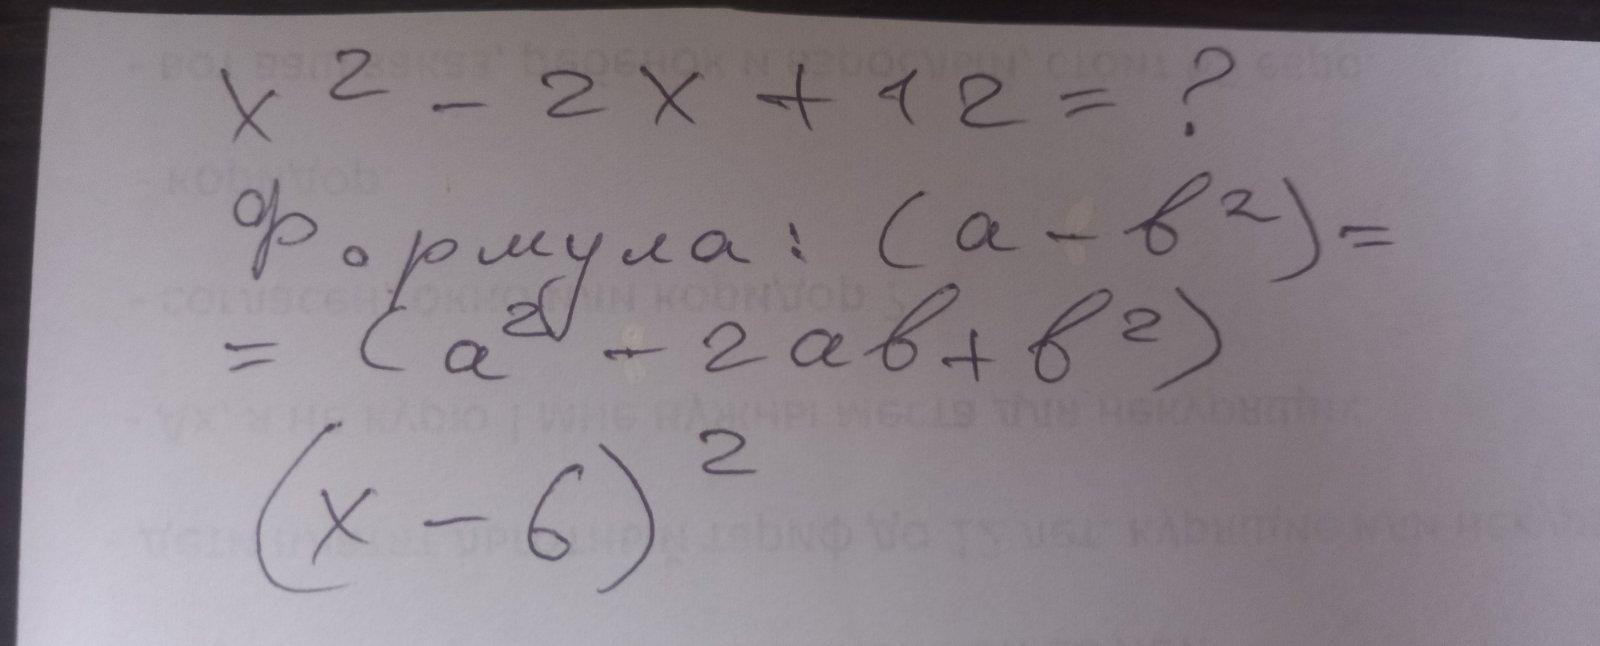 x² - 2x + 12 = ?
Формула: (a - b²) =
= (a² - 2ab + b²)
(x - 6)²